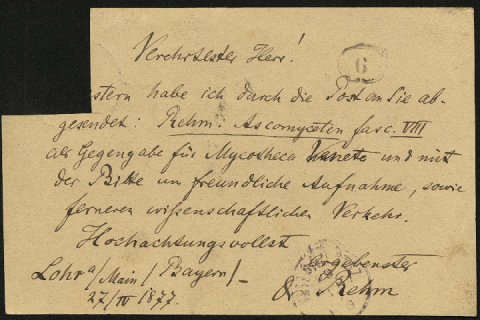 Verehrtester Herr!
6
stern habe ich durch die Post an Sie ab-
gesendet: Rehm: Ascomyceten fasc. VIII
als Gegengabe für Mycotheca und mit
der Bitte um freundliche Aufnahme, sowie
ferneren wissenschaftlichen Verkehr.
Hochachtungsvollst
ergebenster
Lohr a/Main/Bayern/
Dr Rehm
27/IV 1877.